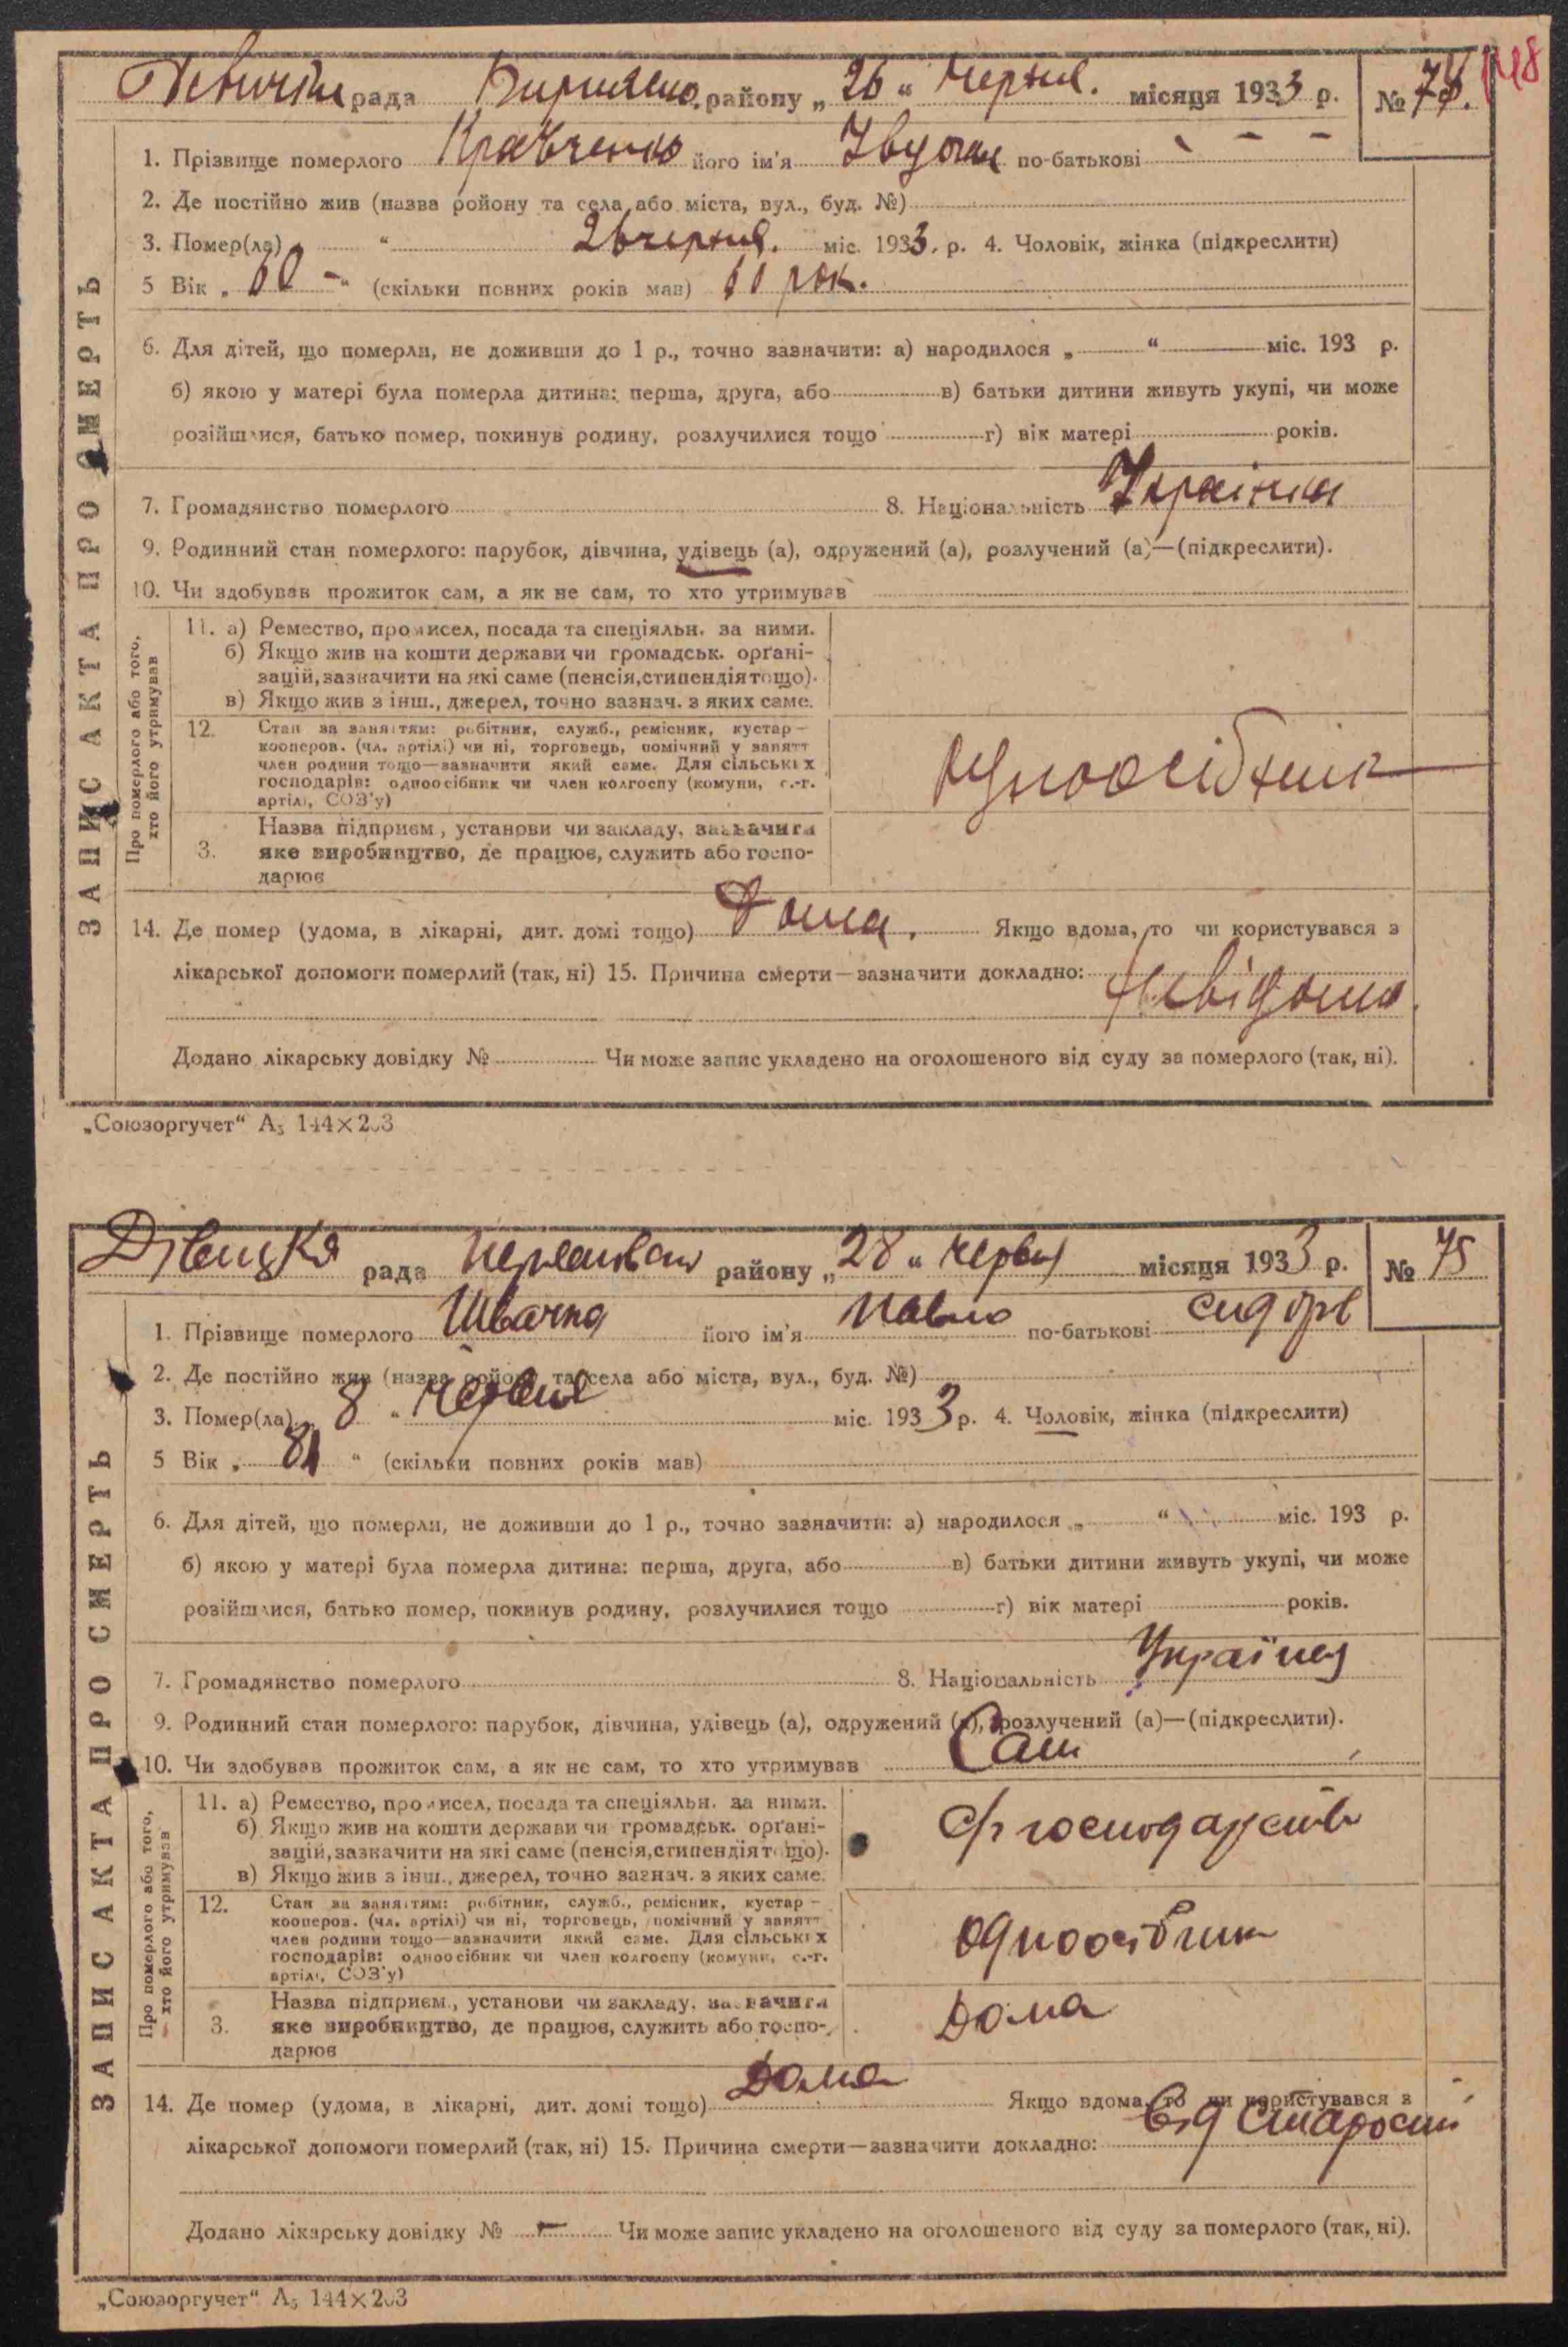 рада району „ 26 “ червня. місяця 1933 р. №
148
ЗАПИС АКТА ПРО СМЕРТЬ
1. Прізвище померлого Кравченко його ім'я по-батькові - - -
2. Де постійно жив (назва ройону та села або міста, вул., буд. №)
3. Помер(ла) “ 26 червня. міс. 1933. р. 4. Чоловік, жінка (підкреслити)
5 Вік „ 60 - “ (скільки повних років мав) рок.
6. Для дітей, що померли, не доживши до 1 р., точно зазначити: а) народилося „ “ міс. 193 р.
б) якою у матері була померла дитина: перша, друга, або в) батьки дитини живуть укупі, чи може
розійшлися, батько помер, покинув родину, розлучилися тощо г) вік матері років.
7. Громадянство померлого 8. Національність Українка
9. Родинний стан померлого: парубок, дівчина, удівець (а), одружений (а), розлучений (а)—(підкреслити).
10. Чи здобував прожиток сам, а як не сам, то хто утримував
Про померлого або того, хто його утримував
11. а) Ремество, промисел, посада та спеціяльн. за ними.
б) Якщо жив на кошти держави чи громадськ. орґані-
зацій, зазначити на які саме (пенсія, стипендія тощо).
в) Якщо жив з інш., джерел, точно зазнач. з яких саме.
12. Стан за заняттям: робітник, служб., ремісник, кустар—
кооперов. (чл. артілі) чи ні, торговець, помічний у занятт
член родини тощо—зазначити який саме. Для сільських
господарів: одноосібник чи член колгоспу (комуни, с.-г.
артілі, СОЗ'у)
одноосібник
3. Назва підприєм, установи чи закладу, зазначити
яке виробництво, де працює, служить або госпо-
дарює
14. Де помер (удома, в лікарні, дит. домі тощо) Дома. Якщо вдома, то чи користувався з
лікарської допомоги померлий (так, ні) 15. Причина смерти—зазначити докладно:
невідома.
Додано лікарську довідку № Чи може запис укладено на оголошеного від суду за померлого (так, ні).
„Союзоргучет“ А5 144×203
Дівицька рада району „ 28 “ червня місяця 1933 р. № 75
ЗАПИС АКТА ПРО СМЕРТЬ
1. Прізвище померлого Швачка його ім'я Павло по-батькові Сидорв
2. Де постійно жив (назва ройону та села або міста, вул., буд. №)
3. Помер(ла) 8 “ червня міс. 1933 р. 4. Чоловік, жінка (підкреслити)
5 Вік „ 81 “ (скільки повних років мав)
6. Для дітей, що померли, не доживши до 1 р., точно зазначити: а) народилося „ “ міс. 193 р.
б) якою у матері була померла дитина: перша, друга, або в) батьки дитини живуть укупі, чи може
розійшлися, батько помер, покинув родину, розлучилися тощо г) вік матері років.
7. Громадянство померлого 8. Національність
9. Родинний стан померлого: парубок, дівчина, удівець (а), одружений (а), розлучений (а)—(підкреслити).
10. Чи здобував прожиток сам, а як не сам, то хто утримував Сам
Про померлого або того, хто його утримував
11. а) Ремество, промисел, посада та спеціяльн. за ними.
б) Якщо жив на кошти держави чи громадськ. орґані-
зацій, зазначити на які саме (пенсія, стипендія тощо).
в) Якщо жив з інш., джерел, точно зазнач. з яких саме.
12. Стан за заняттям: робітник, служб., ремісник, кустар—
кооперов. (чл. артілі) чи ні, торговець, помічний у занятт
член родини тощо—зазначити який саме. Для сільських
господарів: одноосібник чи член колгоспу (комуни, с.-г.
артілі, СОЗ'у)
одноосібник
3. Назва підприєм., установи чи закладу, зазначити
яке виробництво, де працює, служить або госпо-
дарює
Дома
14. Де помер (удома, в лікарні, дит. домі тощо) Дома Якщо вдома, то чи користувався з
лікарської допомоги померлий (так, ні) 15. Причина смерти—зазначити докладно: Від старости
Додано лікарську довідку № – Чи може запис укладено на оголошеного від суду за померлого (так, ні).
„Союзоргучет“ А5 144×203